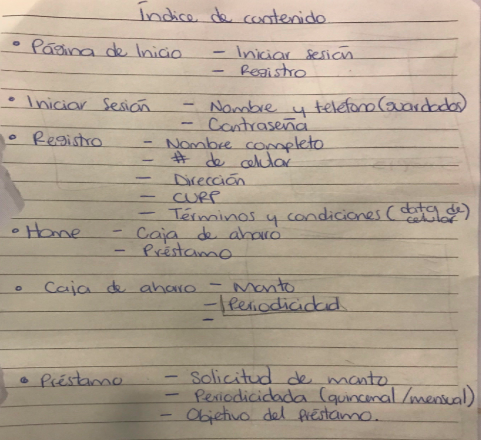 Índice de contenido
• Página de Inicio - Iniciar sesión
- Registro
• Iniciar Sesión - Nombre y teléfono (guardados)
- Contraseña
• Registro - Nombre completo
- # de celular
- Dirección
- CURP
- Términos y condiciones (data de celular)
• Home - Caja de ahorro
- Préstamo
• Caja de ahorro - Monto
- Periodicidad
-
• Préstamo - Solicitud de monto
- Periodicidada (quincenal/mensual)
- Objetivo del Préstamo.